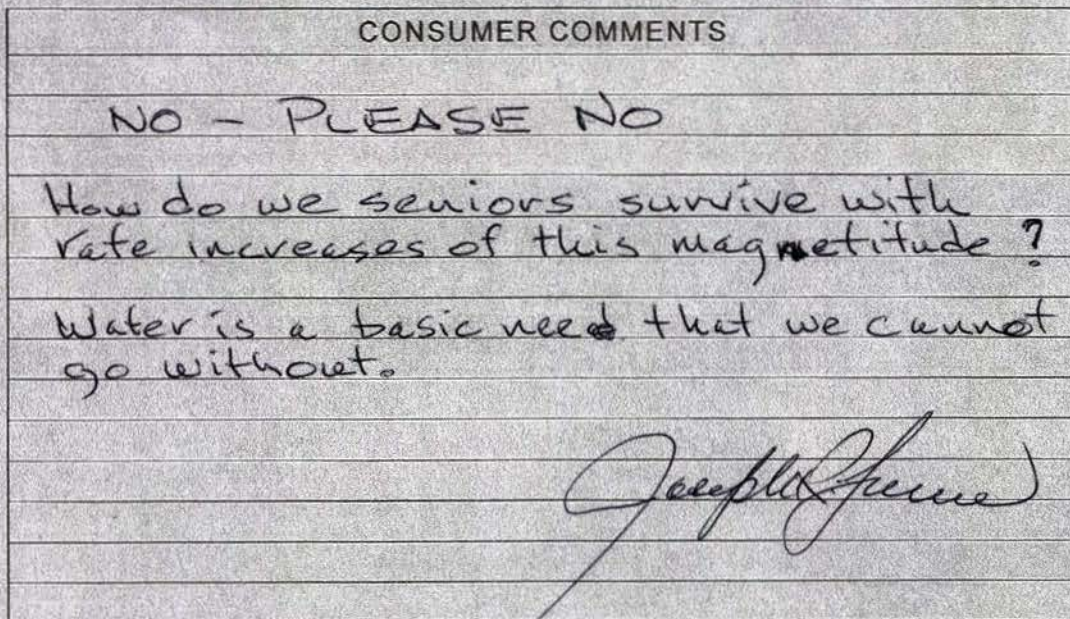 CONSUMER COMMENTS
NO - PLEASE NO
How do we seniors survive with
rate increases of this magnetitude ?
Water is a basic need that we cannot
go without.
Joseph